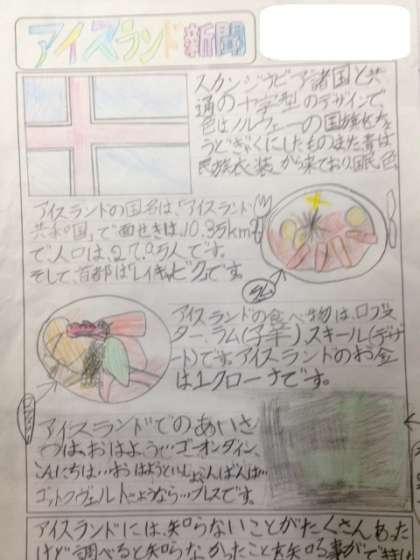 アイスランド新聞
スカンジナビア諸国と共
通の十字型のデザインで、
色はノルウェーの国旗を
ぎゃくにしたものまた青は
民族衣装から来ており国民色
アイスランドの国名は、「アイスランド
共和国」で面せきは、10.3万km²
で、人口は27.9万人です。
そして、首都は「レイキャビク」です。
アイスランドの食べ物は、ロブス
ター、ラム(子羊)、スキール(デザ
ート)です。アイスランドのお金
は1クローナです。
アイスランドでのあいさ
つは、おはよう…ゴーオンダイン、
こんにちは…おはようといっしょ、こんばんは…
ゴットクヴェルト、さようなら…ブレスです。
アイスランドには、知らないことがたくさんあった
けど調べると知らなかったことを知る事ができ